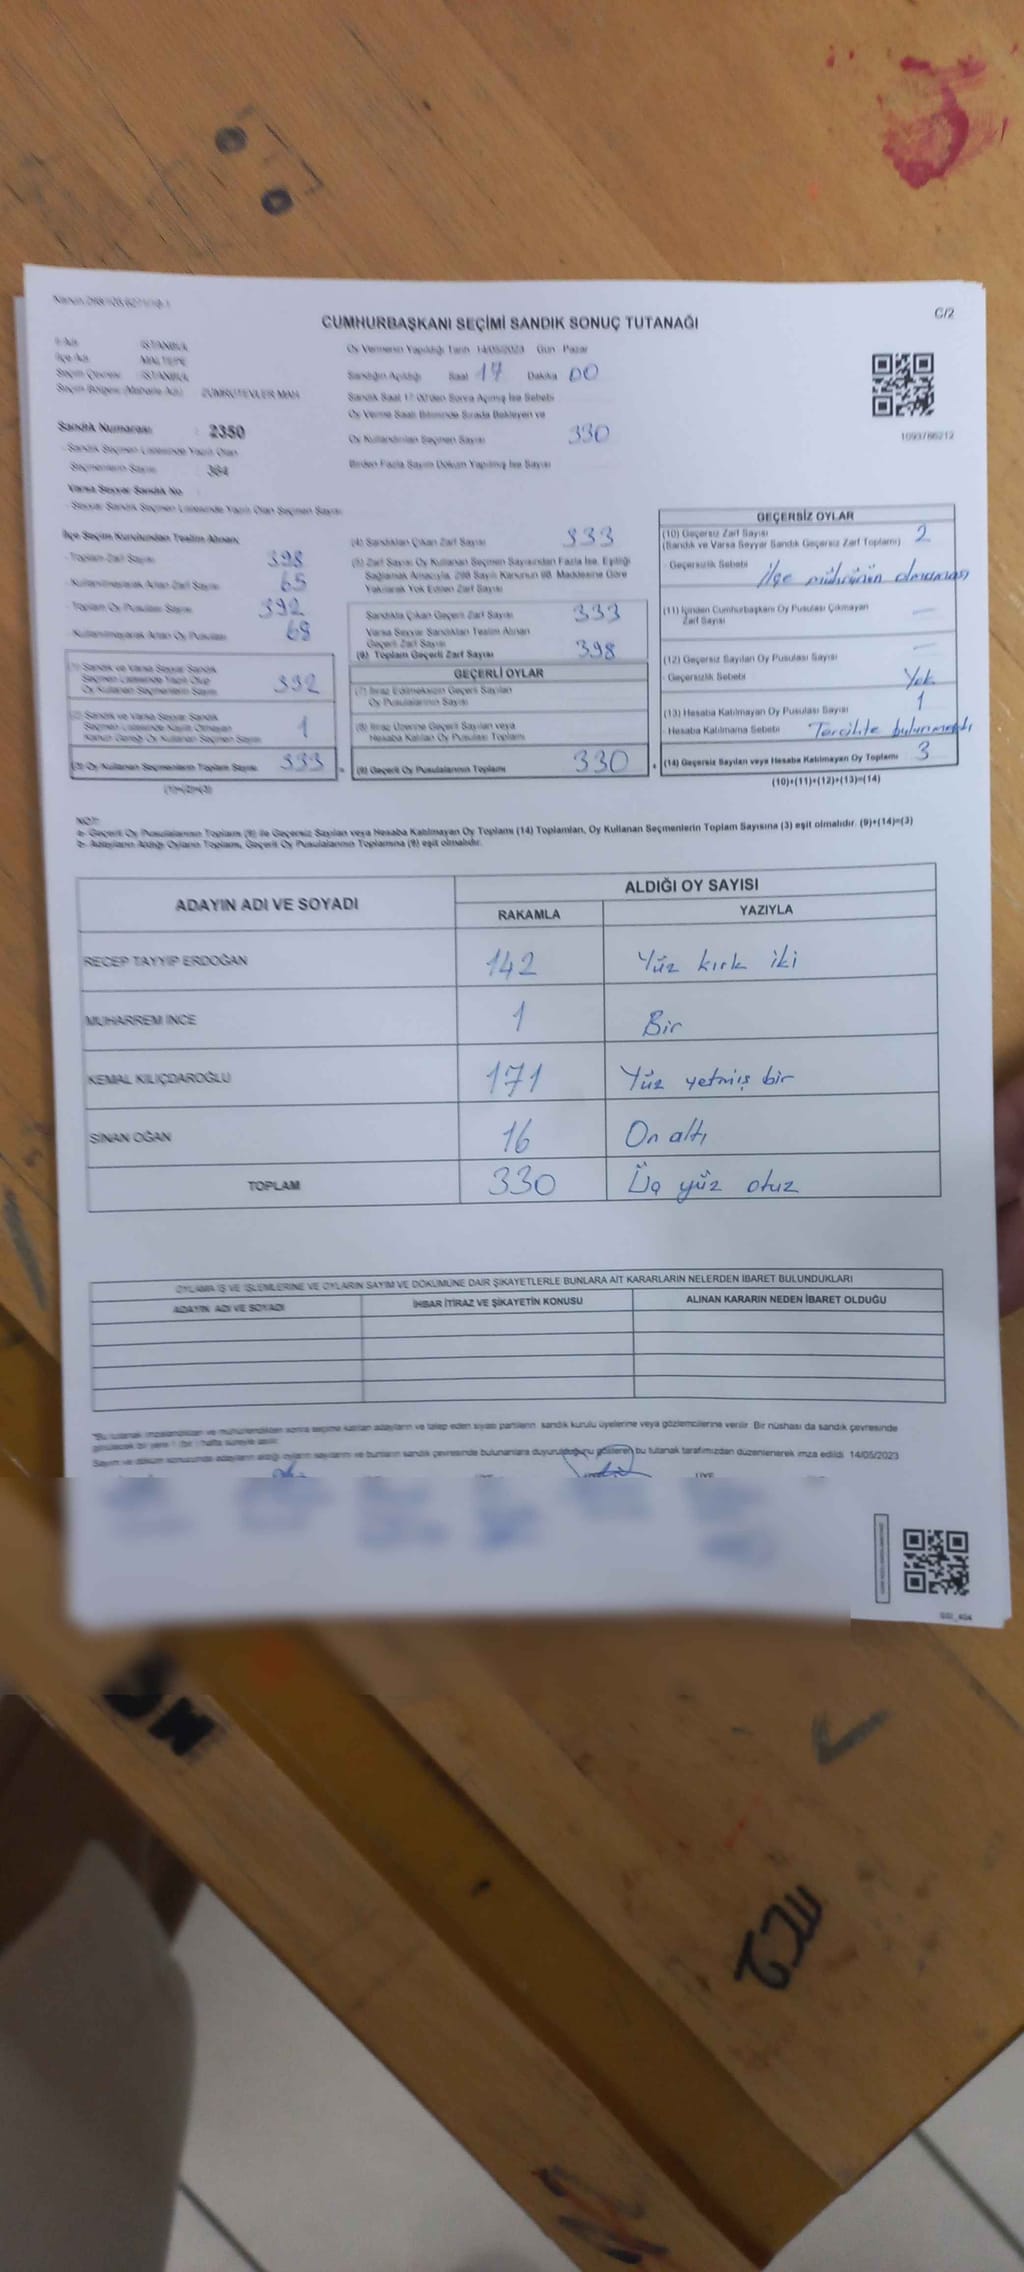 CUMHURBAŞKANI SEÇİMİ SANDIK SONUÇ TUTANAĞI
C/2
İl Adı : İSTANBUL
İlçe Adı : MALTEPE
Seçim Çevresi : İSTANBUL
Seçim Bölgesi (Mahalle Adı) : ZÜMRÜTEVLER MAH.
Oy Vermenin Yapıldığı Tarih 14/05/2023 Gün Pazar
Sandığın Açıldığı Saat 17 Dakika 00
Sandık Saat 17:00'den Sonra Açılmış İse Sebebi
Oy Verme Saati Bitiminde Sırada Bekleyen ve
Oy Kullandırılan Seçmen Sayısı 330
Birden Fazla Sayım Döküm Yapılmış İse Sayısı
1093766212
Sandık Numarası : 2350
- Sandık Seçmen Listesinde Yazılı Olan
Seçmenlerin Sayısı : 384
Varsa Seyyar Sandık No :
- Seyyar Sandık Seçmen Listesinde Yazılı Olan Seçmen Sayısı
İlçe Seçim Kurulundan Teslim Alınan;
- Toplam Zarf Sayısı 398
- Kullanılmayarak Artan Zarf Sayısı 65
- Toplam Oy Pusulası Sayısı 392
- Kullanılmayarak Artan Oy Pusulası 68
(1) Sandık ve Varsa Seyyar Sandık
Seçmen Listesinde Yazılı Olup
Oy Kullanan Seçmenlerin Sayısı 332
(2) Sandık ve Varsa Seyyar Sandık
Seçmen Listesinde Kayıtlı Olmayan
Kanun Gereği Oy Kullanan Seçmen Sayısı 1
(3) Oy Kullanan Seçmenlerin Toplam Sayısı 333
(1)+(2)=(3)
(4) Sandıktan Çıkan Zarf Sayısı 333
(5) Zarf Sayısı Oy Kullanan Seçmen Sayısından Fazla İse, Eşitliği
Sağlamak Amacıyla, 298 Sayılı Kanunun 98. Maddesine Göre
Yakılarak Yok Edilen Zarf Sayısı
Sandıkta Çıkan Geçerli Zarf Sayısı 333
Varsa Seyyar Sandıktan Teslim Alınan
Geçerli Zarf Sayısı
(6) Toplam Geçerli Zarf Sayısı 398
GEÇERLİ OYLAR
(7) İtiraz Edilmeksizin Geçerli Sayılan
Oy Pusulalarının Sayısı
(8) İtiraz Üzerine Geçerli Sayılan veya
Hesaba Katılan Oy Pusulası Toplamı
(9) Geçerli Oy Pusulalarının Toplamı 330
GEÇERSİZ OYLAR
(10) Geçersiz Zarf Sayısı
(Sandık ve Varsa Seyyar Sandık Geçersiz Zarf Toplamı) 2
- Geçersizlik Sebebi ilçe mührünün olmaması
(11) İçinden Cumhurbaşkanı Oy Pusulası Çıkmayan
Zarf Sayısı —
(12) Geçersiz Sayılan Oy Pusulası Sayısı —
- Geçersizlik Sebebi Yok
(13) Hesaba Katılmayan Oy Pusulası Sayısı 1
- Hesaba Katılmama Sebebi Tercihte bulunmadı
(14) Geçersiz Sayılan veya Hesaba Katılmayan Oy Toplamı 3
(10)+(11)+(12)+(13)=(14)
NOT:
a- Geçerli Oy Pusulalarının Toplamı (9) ile Geçersiz Sayılan veya Hesaba Katılmayan Oy Toplamı (14) Toplamları, Oy Kullanan Seçmenlerin Toplam Sayısına (3) eşit olmalıdır. (9)+(14)=(3)
b- Adayların Aldığı Oyların Toplamı, Geçerli Oy Pusulalarının Toplamına (9) eşit olmalıdır.
ADAYIN ADI VE SOYADI
ALDIĞI OY SAYISI
RAKAMLA YAZIYLA
RECEP TAYYİP ERDOĞAN 142 Yüz kırk iki
MUHARREM İNCE 1 Bir
KEMAL KILIÇDAROĞLU 171 Yüz yetmiş bir
SİNAN OĞAN 16 On altı
TOPLAM 330 Üç yüz otuz
OYLAMA İŞ VE İŞLEMLERİNE VE OYLARIN SAYIM VE DÖKÜMÜNE DAİR ŞİKAYETLERLE BUNLARA AİT KARARLARIN NELERDEN İBARET BULUNDUKLARI
ADAYIN ADI VE SOYADI İHBAR İTİRAZ VE ŞİKAYETİN KONUSU ALINAN KARARIN NEDEN İBARET OLDUĞU
*Bu tutanak imzalandıktan ve mühürlendikten sonra seçime katılan adayların ve talep eden siyasi partilerin sandık kurulu üyelerine veya gözlemcilerine verilir. Bir nüshası da sandık çevresinde
görülecek bir yere 1 (bir) hafta süreyle asılır.
Sayım ve döküm sonucunda adayların aldığı oyların sayılarını ve bunların sandık çevresinde bulunanlara duyurulduğunu gösteren bu tutanak tarafımızdan düzenlenerek imza edildi. 14/05/2023
ÜYE